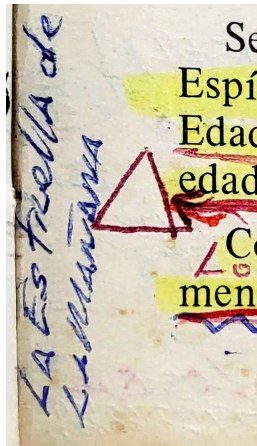 La Estrella de
La Mañana
Se
Espí
Edad
edad
Co
men